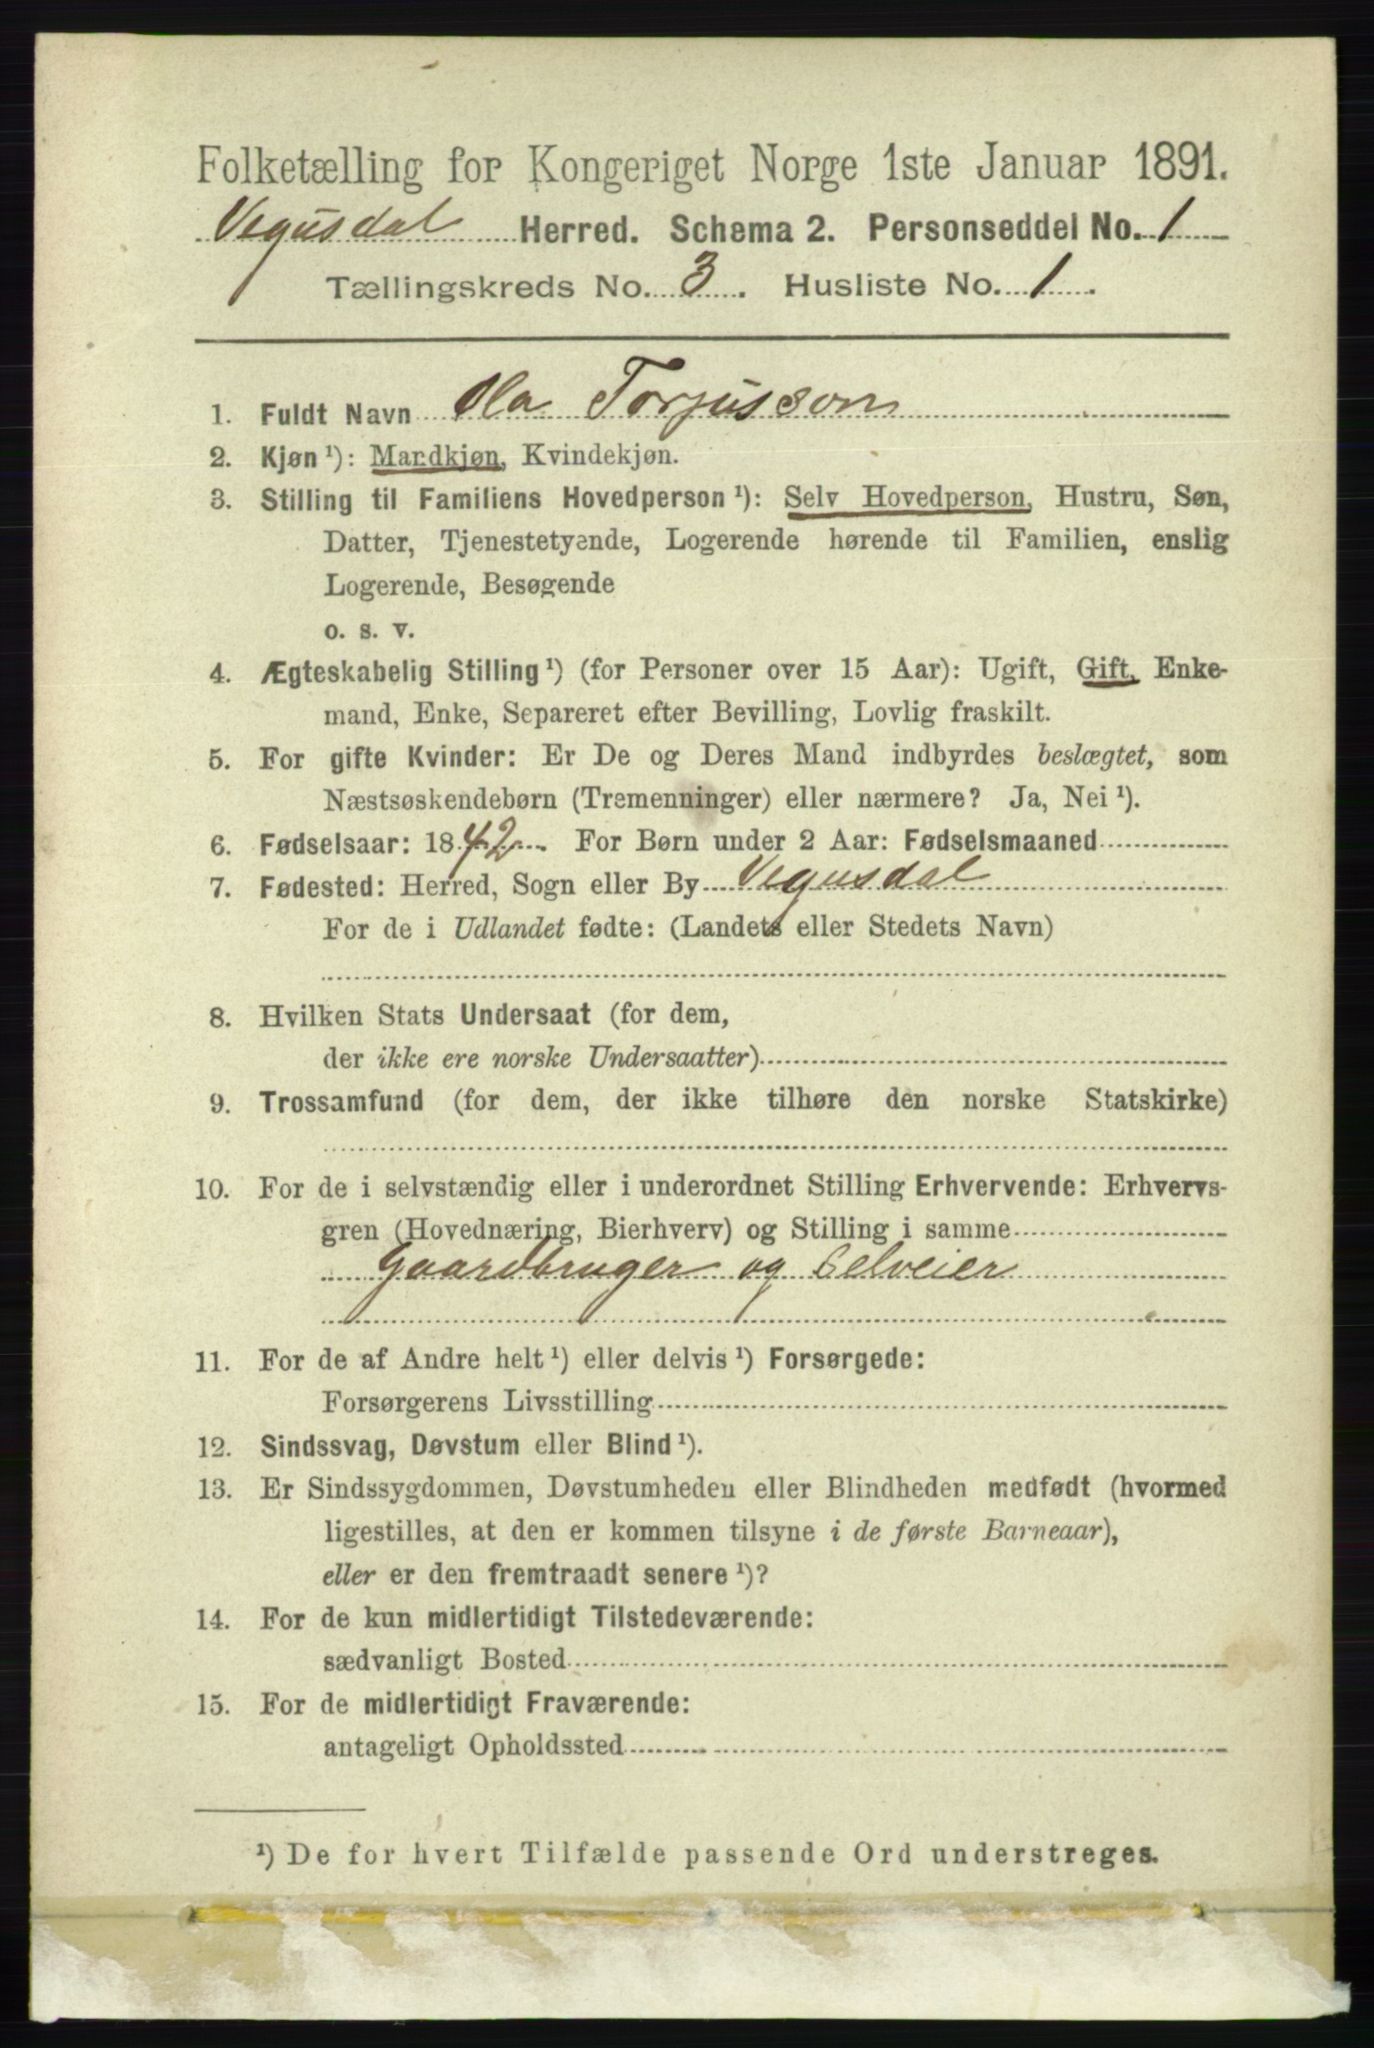 Folketælling for Kongeriget Norge 1ste Januar 1891.
Vegusdal Herred. Schema 2. Personseddel No. 1
Tællingskreds No. 3. Husliste No. 1.
1. Fuldt Navn Ola Torjusson
2. Kjøn¹): Mandkjøn, Kvindekjøn.
3. Stilling til Familiens Hovedperson¹): Selv Hovedperson, Hustru, Søn,
Datter, Tjenestetyende, Logerende hørende til Familien, enslig
Logerende, Besøgende
o. s. v.
4. Ægteskabelig Stilling¹) (for Personer over 15 Aar): Ugift, Gift, Enke-
mand, Enke, Separeret efter Bevilling, Lovlig fraskilt.
5. For gifte Kvinder: Er De og Deres Mand indbyrdes beslægtet, som
Næstsøskendebørn (Tremenninger) eller nærmere? Ja, Nei¹).
6. Fødselsaar: 1842. For Børn under 2 Aar: Fødselsmaaned
7. Fødested: Herred, Sogn eller By Vegusdal
For de i Udlandet fødte: (Landets eller Stedets Navn)
8. Hvilken Stats Undersaat (for dem,
der ikke ere norske Undersaatter)
9. Trossamfund (for dem, der ikke tilhøre den norske Statskirke)
10. For de i selvstændig eller i underordnet Stilling Erhvervende: Erhvervs-
gren (Hovednæring, Bierhverv) og Stilling i samme
Gaardbruger og Selveier
11. For de af Andre helt¹) eller delvis¹) Forsørgede:
Forsørgerens Livsstilling
12. Sindssvag, Døvstum eller Blind¹).
13. Er Sindssygdommen, Døvstumheden eller Blindheden medfødt (hvormed
ligestilles, at den er kommen tilsyne i de første Barneaar),
eller er den fremtraadt senere¹)?
14. For de kun midlertidigt Tilstedeværende:
sædvanligt Bosted
15. For de midlertidigt Fraværende:
antageligt Opholdssted
¹) De for hvert Tilfælde passende Ord understreges.